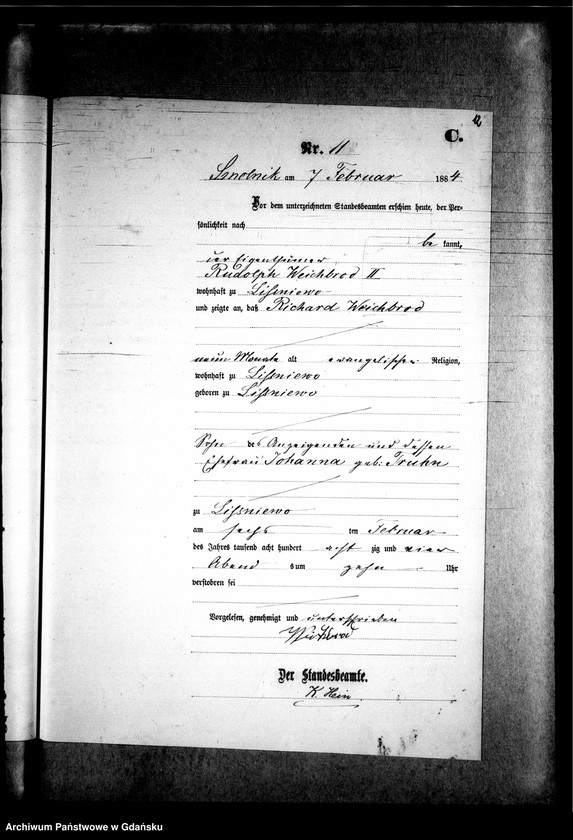 12
C.
Nr. 11
Smolnik am 7 Februar 1884.
Vor dem unterzeichneten Standesbeamten erschien heute, der Per-
sönlichkeit nach
be kannt,
der Eigenthümer
Rudolph Weichbrod II
wohnhaft zu Lissniewo
und zeigte an, daß Richard Weichbrod
neun Monate alt evangelischer Religion,
wohnhaft zu Lissniewo
geboren zu Lissniewo
Sohn des Anzeigenden und dessen
Ehefrau Johanna geb: Truhn
zu Lissniewo
am sechs ten Februar
des Jahres tausend acht hundert acht zig und vier
Abend s um zehn Uhr
verstorben sei
Vorgelesen, genehmigt und unterschrieben
Der Standesbeamte.
K. Hein
Archiwum Państwowe w Gdańsku